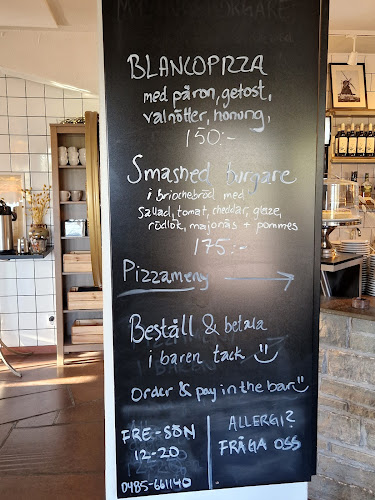 BLANCOPIZZA
med päron, getost,
valnötter, honung,
150:-
Smashed burgare
i briochebröd med
Sallad, tomat, cheddar, glaze,
rödlök, majonäs + pommes
175:-
Pizzameny
Beställ & betala
i baren tack
order & pay in the bar
FRE-SÖN
12-20
0485-661140
ALLERGI?
FRÅGA OSS